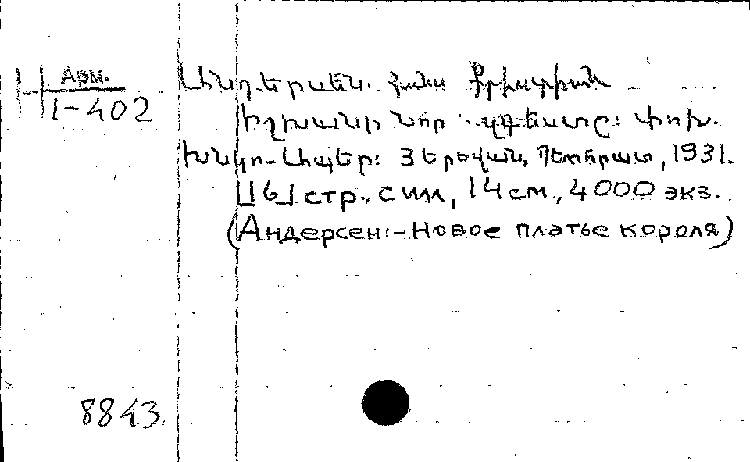 Арм.
I-402
Անդերսեն. Հանս Քրիստիան
Իշխանի նոր զգեստը: փոխ.
Խնկո-Ապեր: Յերևան, Պետհրատ, 1931.
стр., с илл, 14 см., 4000 экз.
(Андерсен:-Новое платье короля)
8843.